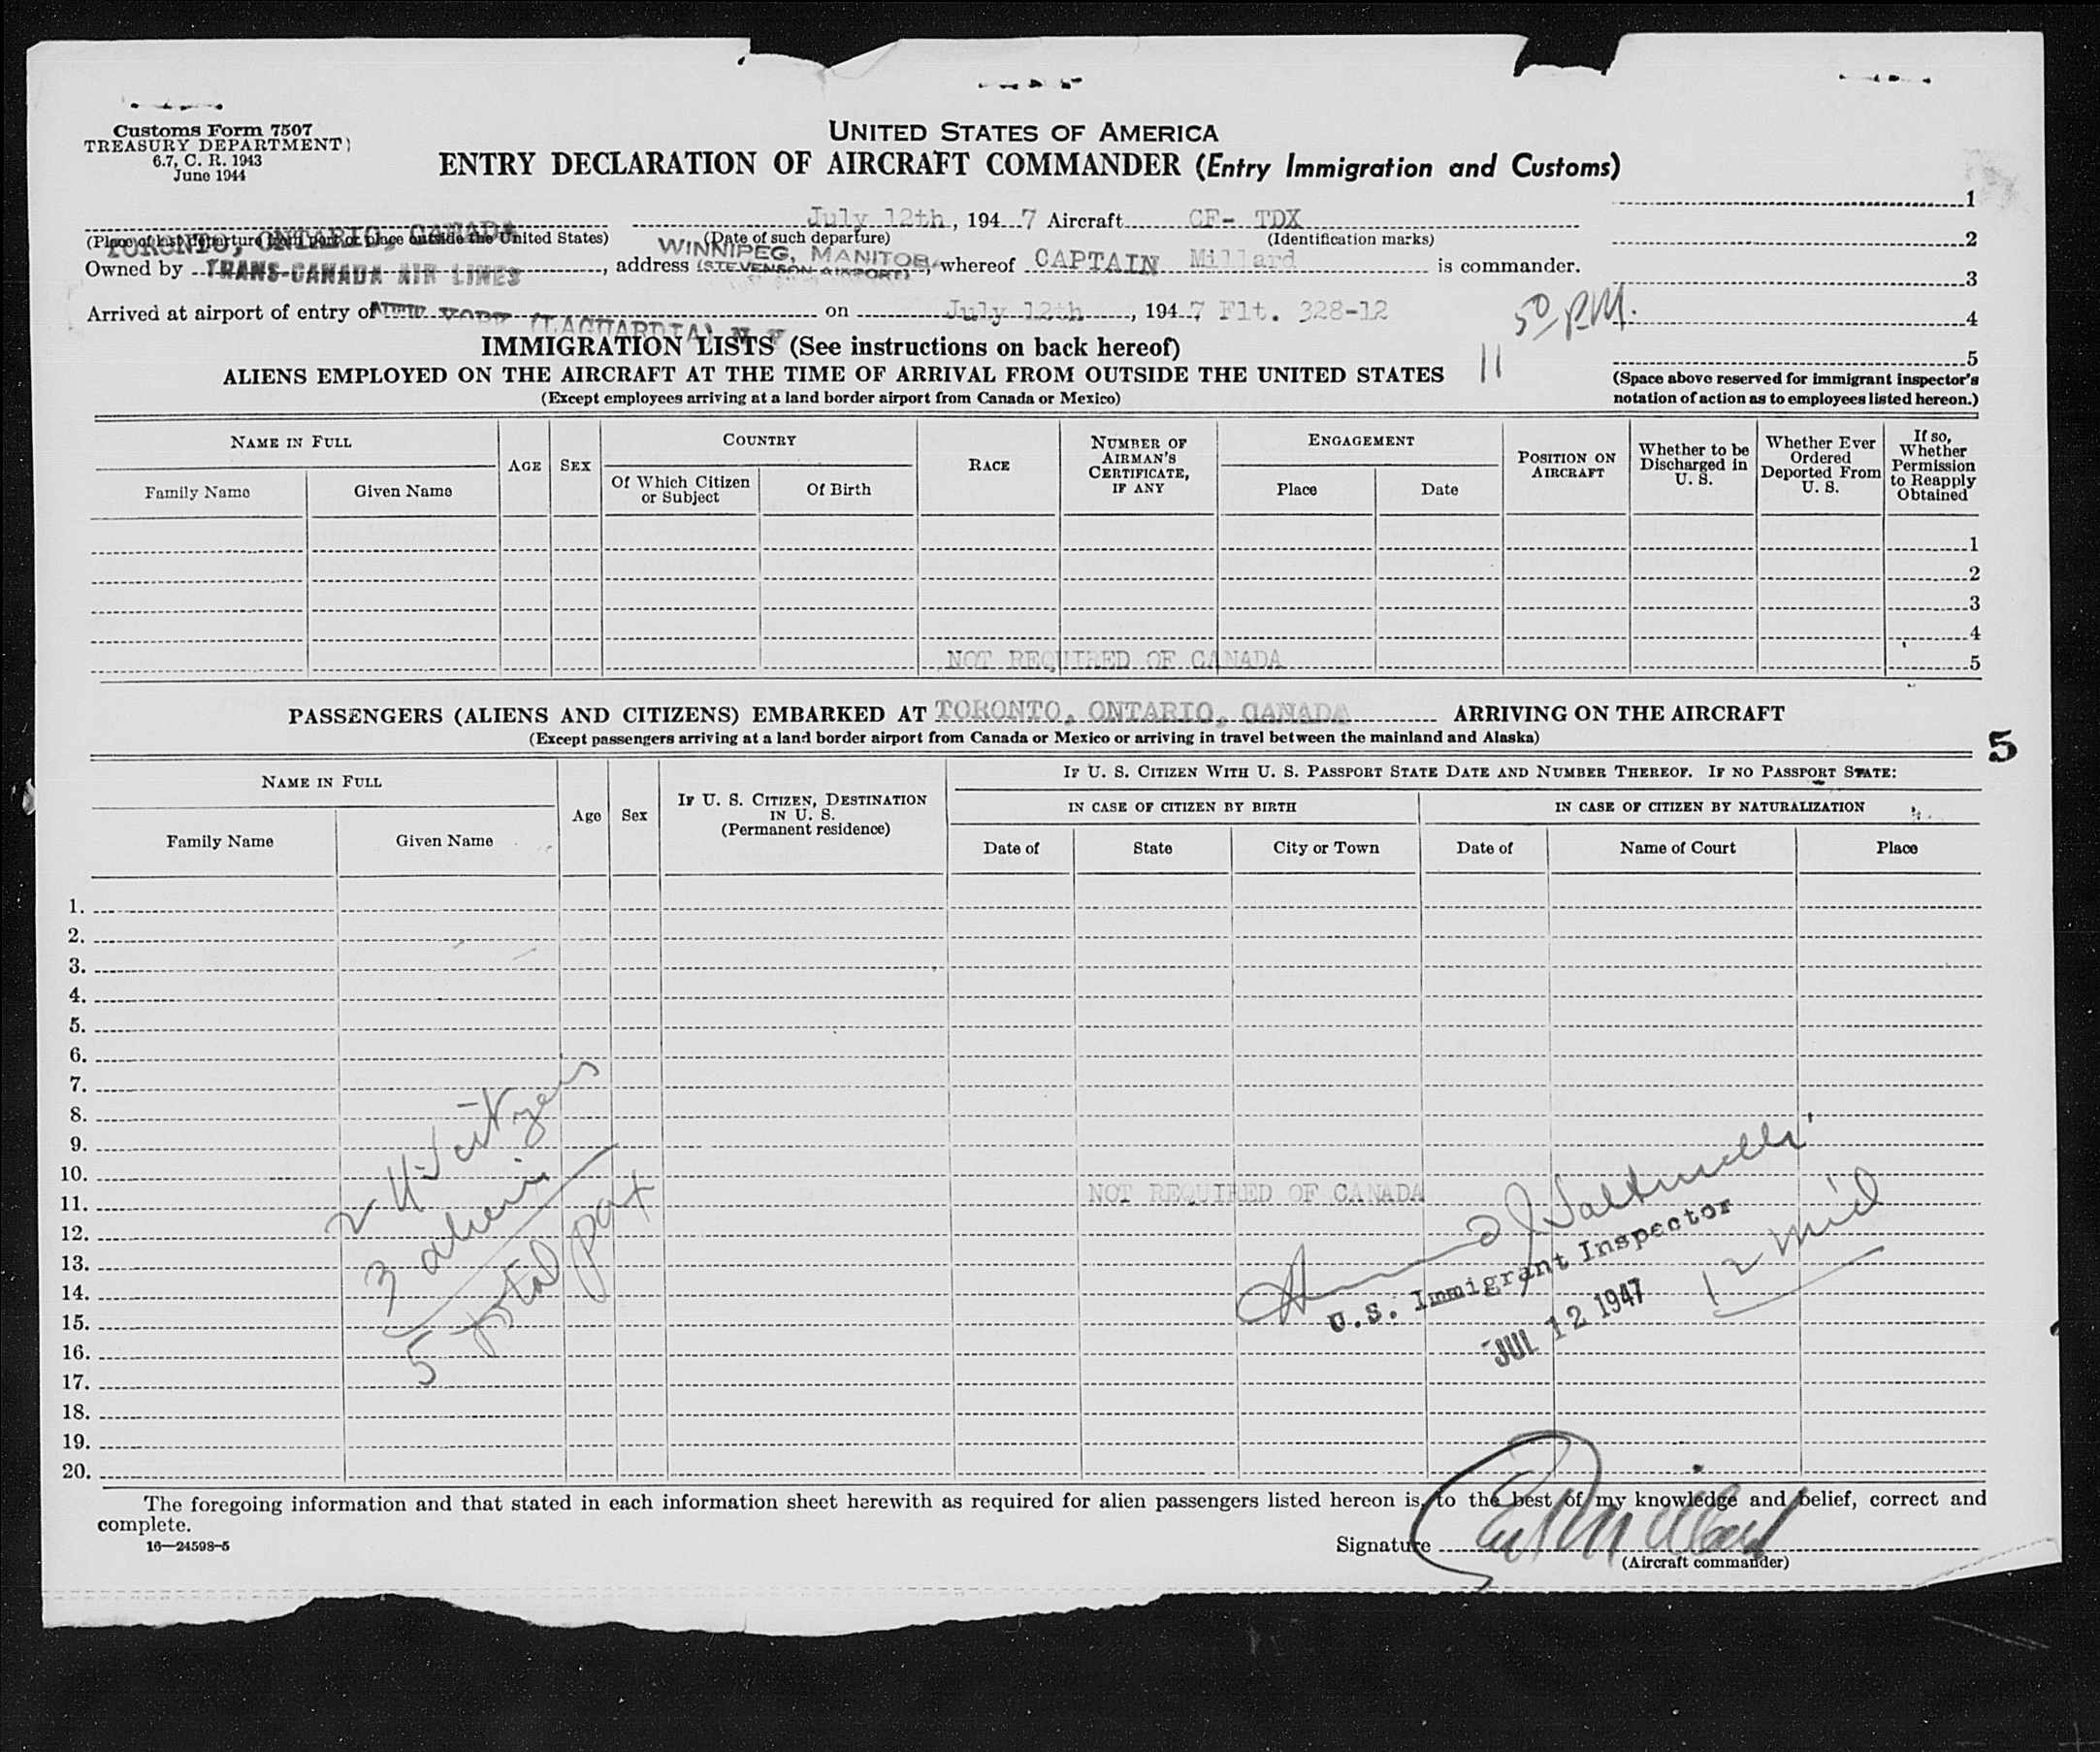 Customs Form 7507
TREASURY DEPARTMENT)
6.7, C. R. 1943
June 1944
UNITED STATES OF AMERICA
ENTRY DECLARATION OF AIRCRAFT COMMANDER (Entry Immigration and Customs)
TORONTO, ONTARIO, CANADA July 12th, 1947 Aircraft CF- TDX
(Place of last departure from port or place outside the United States) (Date of such departure) (Identification marks)
Owned by TRANS-CANADA AIR LINES, address WINNIPEG, MANITOBA (STEVENSON AIRPORT), whereof CAPTAIN Millard is commander.
Arrived at airport of entry of NEW YORK (LAGUARDIA) N Y on July 12th, 1947 Flt. 328-12
11 50 PM.
1
2
3
4
5
(Space above reserved for immigrant inspector's
notation of action as to employees listed hereon.)
IMMIGRATION LISTS (See instructions on back hereof)
ALIENS EMPLOYED ON THE AIRCRAFT AT THE TIME OF ARRIVAL FROM OUTSIDE THE UNITED STATES
(Except employees arriving at a land border airport from Canada or Mexico)
NAME IN FULL
Family Name Given Name
AGE SEX
COUNTRY
Of Which Citizen or Subject Of Birth
RACE
NUMBER OF AIRMAN'S CERTIFICATE, IF ANY
ENGAGEMENT
Place Date
POSITION ON AIRCRAFT
Whether to be Discharged in U. S.
Whether Ever Ordered Deported From U. S.
If so, Whether Permission to Reapply Obtained
1
2
3
4
NOT REQUIRED OF CANADA 5
PASSENGERS (ALIENS AND CITIZENS) EMBARKED AT TORONTO, ONTARIO, CANADA ARRIVING ON THE AIRCRAFT
(Except passengers arriving at a land border airport from Canada or Mexico or arriving in travel between the mainland and Alaska)
5
NAME IN FULL
Family Name Given Name
Age Sex
IF U. S. CITIZEN, DESTINATION IN U. S.
(Permanent residence)
IF U. S. CITIZEN WITH U. S. PASSPORT STATE DATE AND NUMBER THEREOF. IF NO PASSPORT STATE:
IN CASE OF CITIZEN BY BIRTH IN CASE OF CITIZEN BY NATURALIZATION
Date of State City or Town Date of Name of Court Place
1.
2.
3.
4.
5.
6.
7.
8.
9.
10.
11.
12.
13.
14.
15.
16.
17.
18.
19.
20.
2 U-S citizens
3 aliens
5 total pax
NOT REQUIRED OF CANADA
U.S. Immigrant Inspector
JUL 12 1947
12 mid
The foregoing information and that stated in each information sheet herewith as required for alien passengers listed hereon is, to the best of my knowledge and belief, correct and
complete.
16—24598-5
Signature Millard
(Aircraft commander)